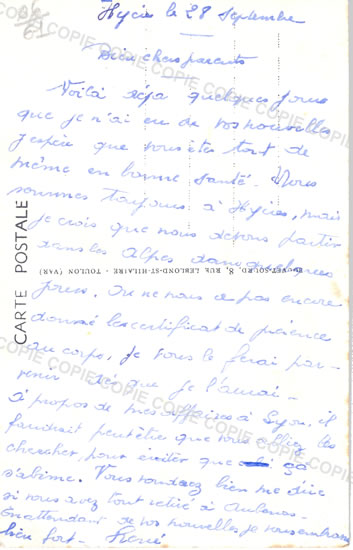 Hyères le 28 Septembre
Bien chers parents
Voilà déja quelques jours
que je n'ai eu de vos nouvelles
j'espère que vous êtes tout de
même en bonne santé. Nous
sommes toujours à Hyères, mais
je crois que nous devons partir
dans les Alpes dans quelques
jours. On ne nous a pas encore
donné les certificat de présence
au corps, je vous le ferai par-
venir dès que je l'aurai.
à propos de mes affaires à Lyon, il
faudrait peut être que vous alliez les
chercher, pour éviter que ça
s'abime. Vous voudrez bien me dire
si vous avez tout retiré à Aubenas.
En attendant de vos nouvelles je vous embrasse
bien fort. René
CARTE POSTALE
8, RUE LEBLOND-ST-HILAIRE - TOULON (VAR)
COPIE COPIE COPIE COPIE